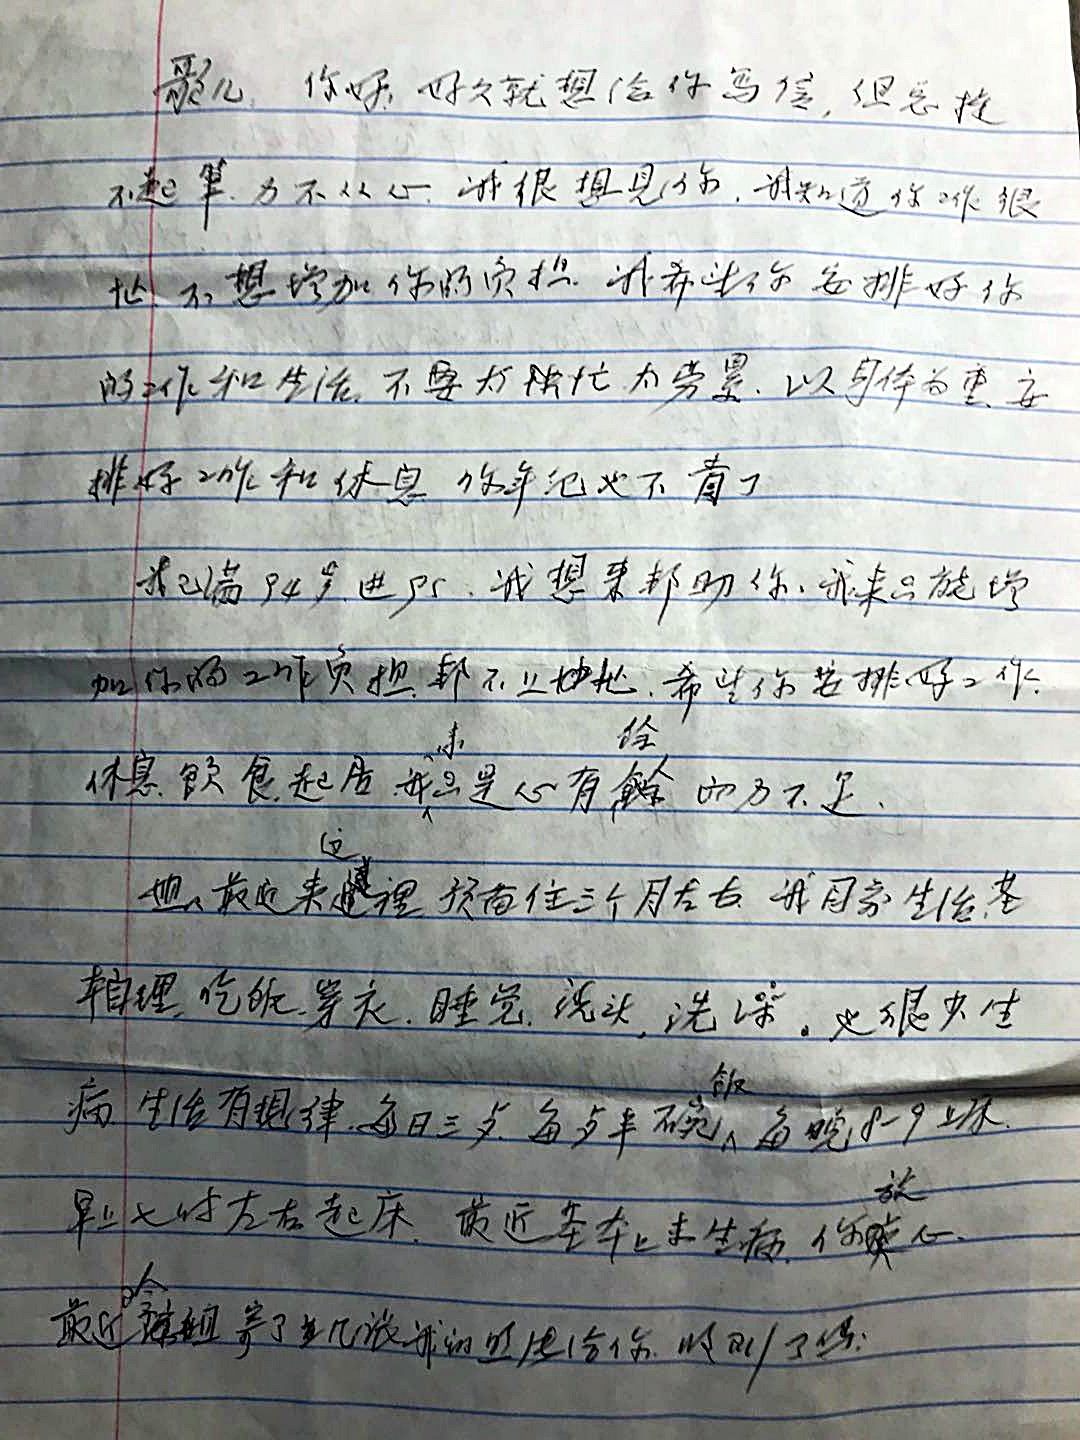 你好, 好久就想给你写信, 但总提
不起笔. 力不从心. 我很想见你. 我知道你工作很
忙. 不想增加你的负担. 我希望你安排好你
的工作和生活, 不要太忙太劳累. 以身体为重. 安
排好工作和休息 你年纪也不青了
我已满94岁. 进95. 我想来帮助你. 我来只能增
加你的工作负担. 帮不上忙. 希望你安排好工作.
休息. 飲食. 起居 我来只是心有餘而力不足.
最近来这裡 预备住三个月左右 我日常生活. 基
本自理, 吃饭. 穿衣. 睡觉. 洗头, 洗澡. 也很少生
病. 生活有规律. 每日三歺. 每歺半碗饭. 每晚8-9上床.
早上七时左右起床. 最近基本上未生病. 你放心.
最近 寄了 我的照片给你.